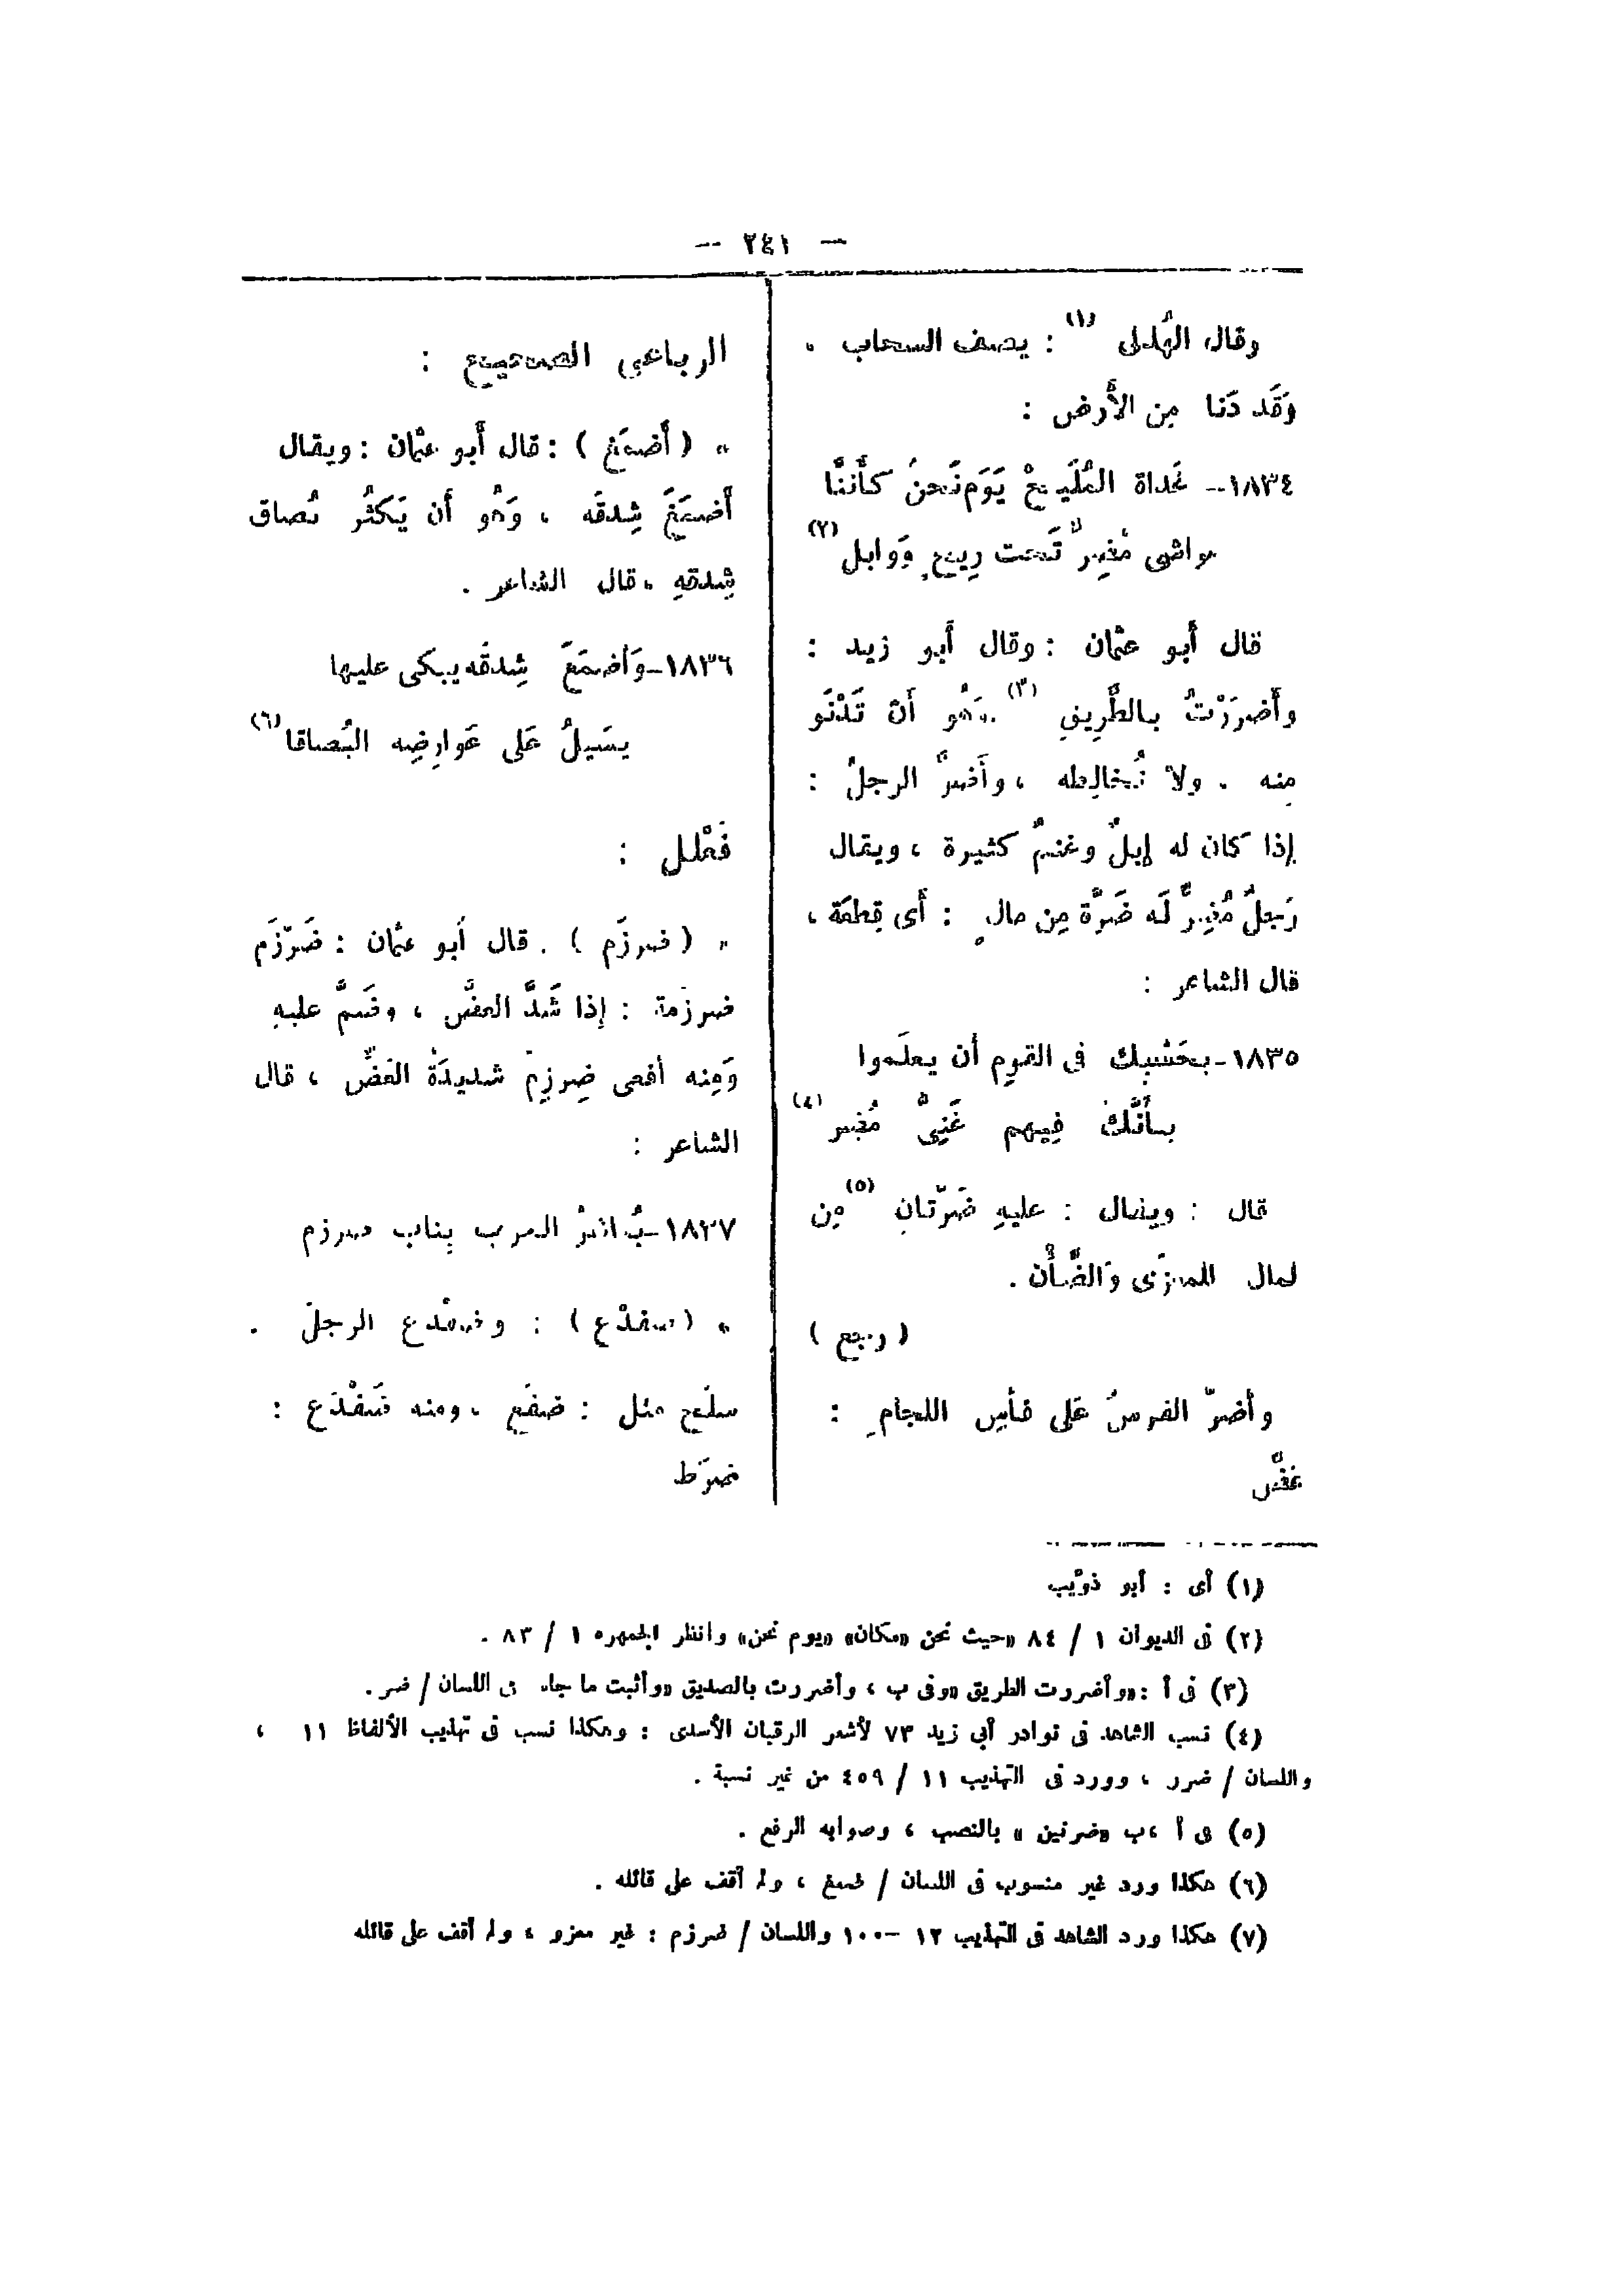 — ٢٤١ —
وقال الهُذلى (١) : يصف السحاب .
وَقَد دَنا مِن الأَرض :
١٨٣٤- غَداة المُلَيح يَوَم نَحنُ كأَنَّنا
مواشى مُضِرٌّ تَحت رِيحٍ وَوابل (٢)
قال أَبو عثمان : وقال أَبو زيد :
وأَضرَرْتُ بالطَّرِيقِ (٣) .وَهُو أَن تَدْنَو
مِنه . ولا تُخالِطه ، وأَضرَّ الرجلُ :
إذا كان له إبلٌ وغنمٌ كثيرة ، ويقال
رَجلٌ مُضِرٌّ لَه ضَرَّة مِن مالٍ : أَى قِطعَة ،
قال الشاعر :
١٨٣٥- بحَسْبِك فى القومِ أن يعلَموا
بأَنَّكَ فِيهم غَنِىٌّ مُضِر (٤)
قال : ويقال : عليهِ ضَرّتانِ (٥) مِن
لمال المعزَى وَالضَّأْن .
( رجع )
وأضرّ الفرسُ عَلى فأسِ اللجامِ :
عَضَّ
الرباعى الصحيح :
« ( أَضمَغ ) : قال أَبو عثمان : ويقال
أَضمَغَ شِدقُه ، وَهُو أن يَكثُر بُصاق
شِدقهِ ، قال الشاعر .
١٨٣٦- وَأضمَغَ شِدقُه يبكى عليها
يسَيلُ عَلى عَوارِضِه البُصاقا (٦)
فَعْلل :
« ( ضرزَم ) . قال أَبو عثمان : ضَرّزَم
ضرزمة : إذا شَدَّ العضَّ ، وضَمَّ عليهِ
وَمِنه أفعى ضِرزِم شديدَة العَضِّ ، قال
الشاعر :
١٨٣٧- الحرب بِناب ضرزم
« (ضفدْع ) : وضفْدع الرجلُ .
سلَح مثل : ضفَع ، ومنه ضَفْدَع :
ضرَط
(١) أى : أبو ذؤيب
(٢) فى الديوان ١ / ٨٤ «حيث نحن «مكان» «يوم نحن» وانظر الجمهره ١ / ٨٣ .
(٣) فى أ : «وأضررت الطريق «وفى ب ، وأضررت بالصديق «وأثبت ما جاء فى اللسان / ضر .
(٤) نسب الشاهد فى نوادر أبي زيد ٧٣ لأشعر الرقبان الأسدى : وهكذا نسب فى تهذيب الألفاظ ١١ ،
واللسان / ضرر ، وورد فى التهذيب ١١ / ٤٥٩ من غير نسبة .
(٥) فى أ ،ب «ضرتين » بالنصب ، وصوابه الرفع .
(٦) هكذا ورد غير منسوب فى اللسان / ضمغ ، ولم أقف على قائله .
(٧) هكذا ورد الشاهد فى التهذيب ١٢ –١٠٠ واللسان / ضرزم : غير معزو ، ولم أقف على قائله